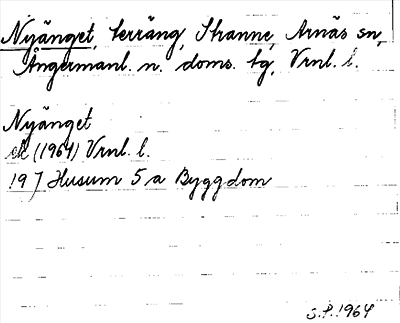 Nyänget, terräng, Stranne, Arnäs sn,
Ångermanl. n. doms. tg, Vrnl. l.
Nyänget
ek (1964) Vrnl. l.
19 J Husum 5 a Byggdom
S.P. 1964